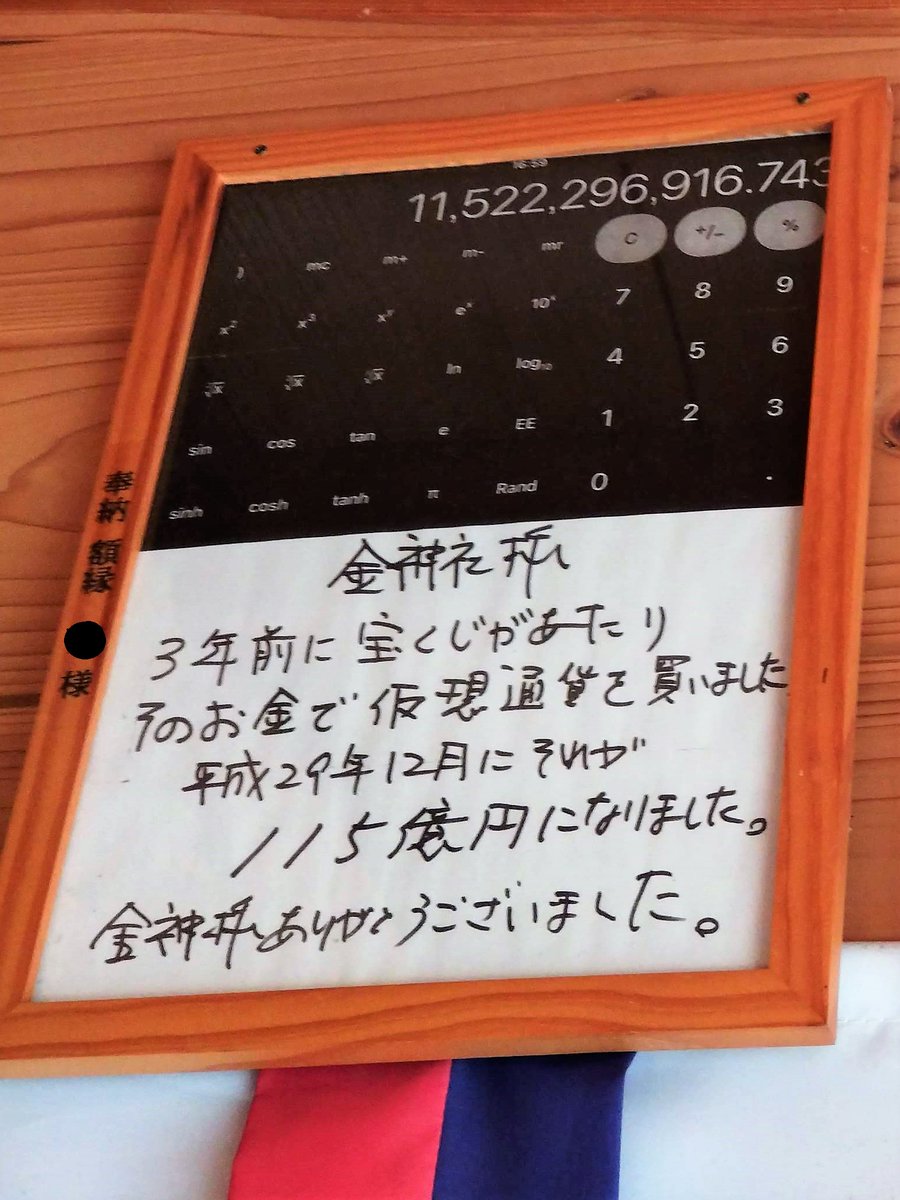 16:59
11,522,296,916.743
) mc m+ m- mr C +/- %
x² x³ xʸ eˣ 10ˣ 7 8 9
²√x ³√x ʸ√x ln log₁₀ 4 5 6
sin cos tan e EE 1 2 3
sinh cosh tanh π Rand 0 .
金神社様
3年前に宝くじがあたり
そのお金で仮想通貨を買いました
平成29年12月にそれが
115億円になりました。
金神様ありがとうございました。
奉納 額縁
様